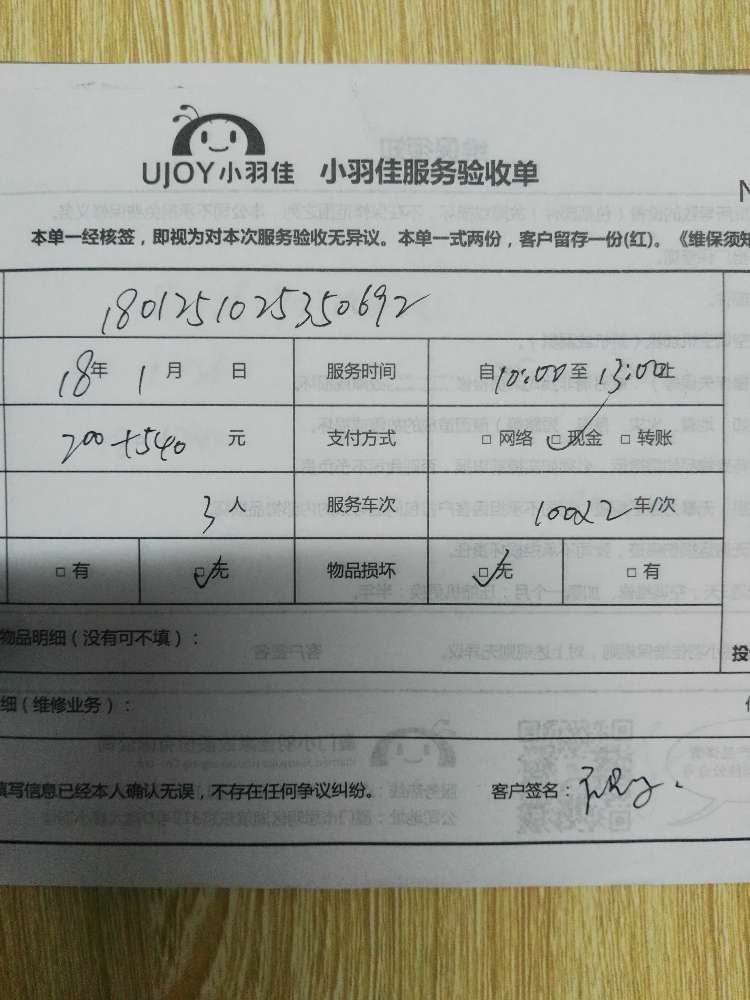 UJOY小羽佳 小羽佳服务验收单
N
本单一经核签,即视为对本次服务验收无异议。本单一式两份,客户留存一份(红)。《维保须知
1801251025350692
18年 1月 日 服务时间 自10:00至13:00止
200+540 元 支付方式 □ 网络 ☑ 现金 □ 转账
3人 服务车次 100x2 车/次
□ 有 ☑ 无 物品损坏 ☑ 无 □ 有
物品明细(没有可不填):
投
细(维修业务):
填写信息已经本人确认无误,不存在任何争议纠纷。 客户签名: